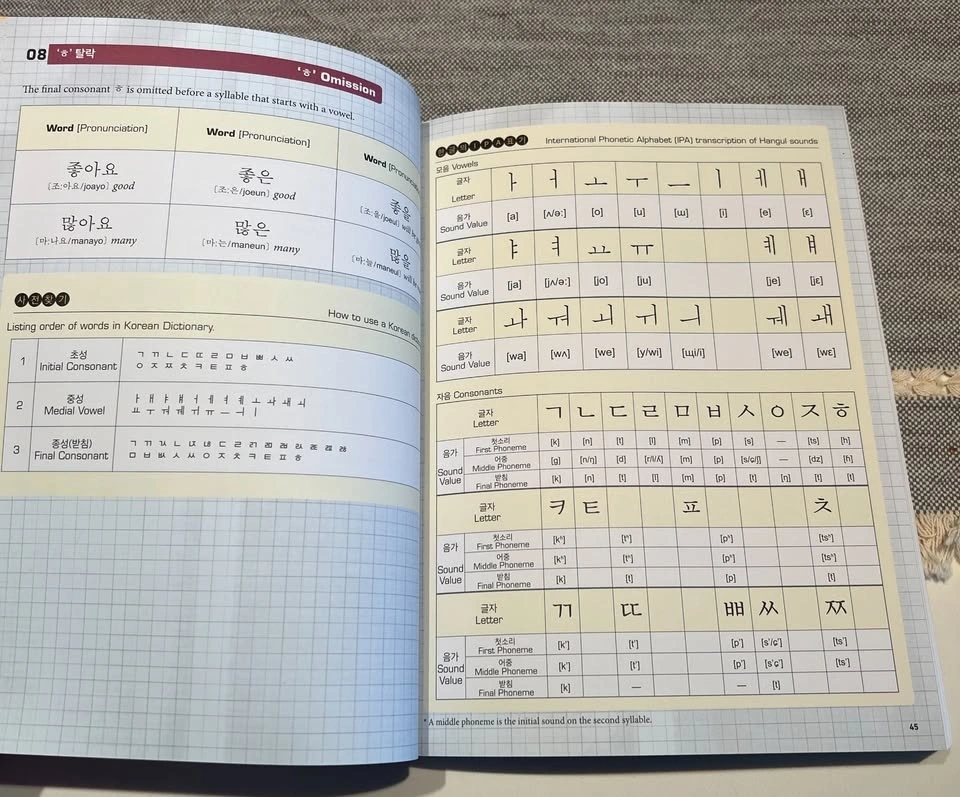 08 'ㅎ' 탈락
'ㅎ' Omission
The final consonant ㅎ is omitted before a syllable that starts with a vowel.
Word [Pronunciation] Word [Pronunciation] Word
좋아요 좋은 좋을
[조:아요/joayo] good [조:은/joeun] good [조:을/joeul] will be
많아요 많은 많을
[마:나요/manayo] many [마:는/maneun] many [마:늘/maneul] will be
사전찾기
How to use a Korean
Listing order of words in Korean Dictionary.
1 초성 Initial Consonant
ㄱ ㄲ ㄴ ㄷ ㄸ ㄹ ㅁ ㅂ ㅃ ㅅ ㅆ
ㅇ ㅈ ㅉ ㅊ ㅋ ㅌ ㅍ ㅎ
2 중성 Medial Vowel
ㅏ ㅐ ㅑ ㅒ ㅓ ㅔ ㅕ ㅖ ㅗ ㅘ ㅙ ㅚ
ㅛ ㅜ ㅝ ㅞ ㅟ ㅠ ㅡ ㅢ ㅣ
3 종성(받침) Final Consonant
ㄱ ㄲ ㄳ ㄴ ㄵ ㄶ ㄷ ㄹ ㄺ ㄻ ㄼ ㄽ ㄾ ㄿ ㅀ
ㅁ ㅂ ㅄ ㅅ ㅆ ㅇ ㅈ ㅊ ㅋ ㅌ ㅍ ㅎ
한글의IPA표기 International Phonetic Alphabet (IPA) transcription of Hangul sounds
모음 Vowels
글자 Letter ㅏ ㅓ ㅗ ㅜ ㅡ ㅣ ㅔ ㅐ
음가 Sound Value [a] [ʌ/ə:] [o] [u] [ɯ] [i] [e] [ɛ]
글자 Letter ㅑ ㅕ ㅛ ㅠ ㅖ ㅒ
음가 Sound Value [ja] [jʌ/ə:] [jo] [ju] [je] [jɛ]
글자 Letter ㅘ ㅝ ㅚ ㅟ ㅢ ㅞ ㅙ
음가 Sound Value [wa] [wʌ] [we] [y/wi] [ɰi/i] [we] [wɛ]
자음 Consonants
글자 Letter ㄱ ㄴ ㄷ ㄹ ㅁ ㅂ ㅅ ㅇ ㅈ ㅎ
음가 Sound Value
첫소리 First Phoneme [k] [n] [t] [l] [m] [p] [s] — [ts] [h]
어중 Middle Phoneme [g] [n/ŋ] [d] [r/l/ʎ] [m] [p] [s/ɕ/ʃ] — [dz] [ɦ]
받침 Final Phoneme [k] [n] [t] [l] [m] [p] [t] [ŋ] [t] [t]
글자 Letter ㅋ ㅌ ㅍ ㅊ
음가 Sound Value
첫소리 First Phoneme [kʰ] [tʰ] [pʰ] [tsʰ]
어중 Middle Phoneme [kʰ] [tʰ] [pʰ] [tsʰ]
받침 Final Phoneme [k] [t] [p] [t]
글자 Letter ㄲ ㄸ ㅃ ㅆ ㅉ
음가 Sound Value
첫소리 First Phoneme [k'] [t'] [p'] [s'/ɕ'] [ts']
어중 Middle Phoneme [k'] [t'] [p'] [s'ɕ'] [ts']
받침 Final Phoneme [k] — — [t]
* A middle phoneme is the initial sound on the second syllable.
45